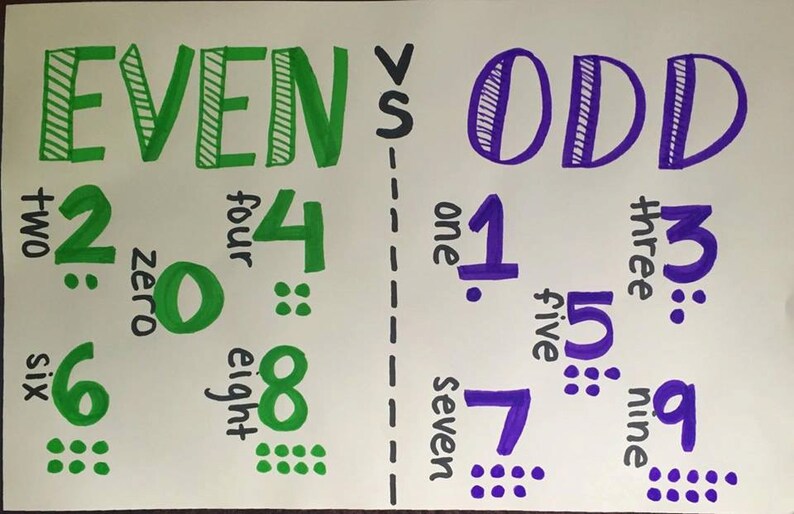 EVEN
two 2
four 4
zero 0
six 6
eight 8
VS
ODD
one 1
three 3
five 5
seven 7
nine 9